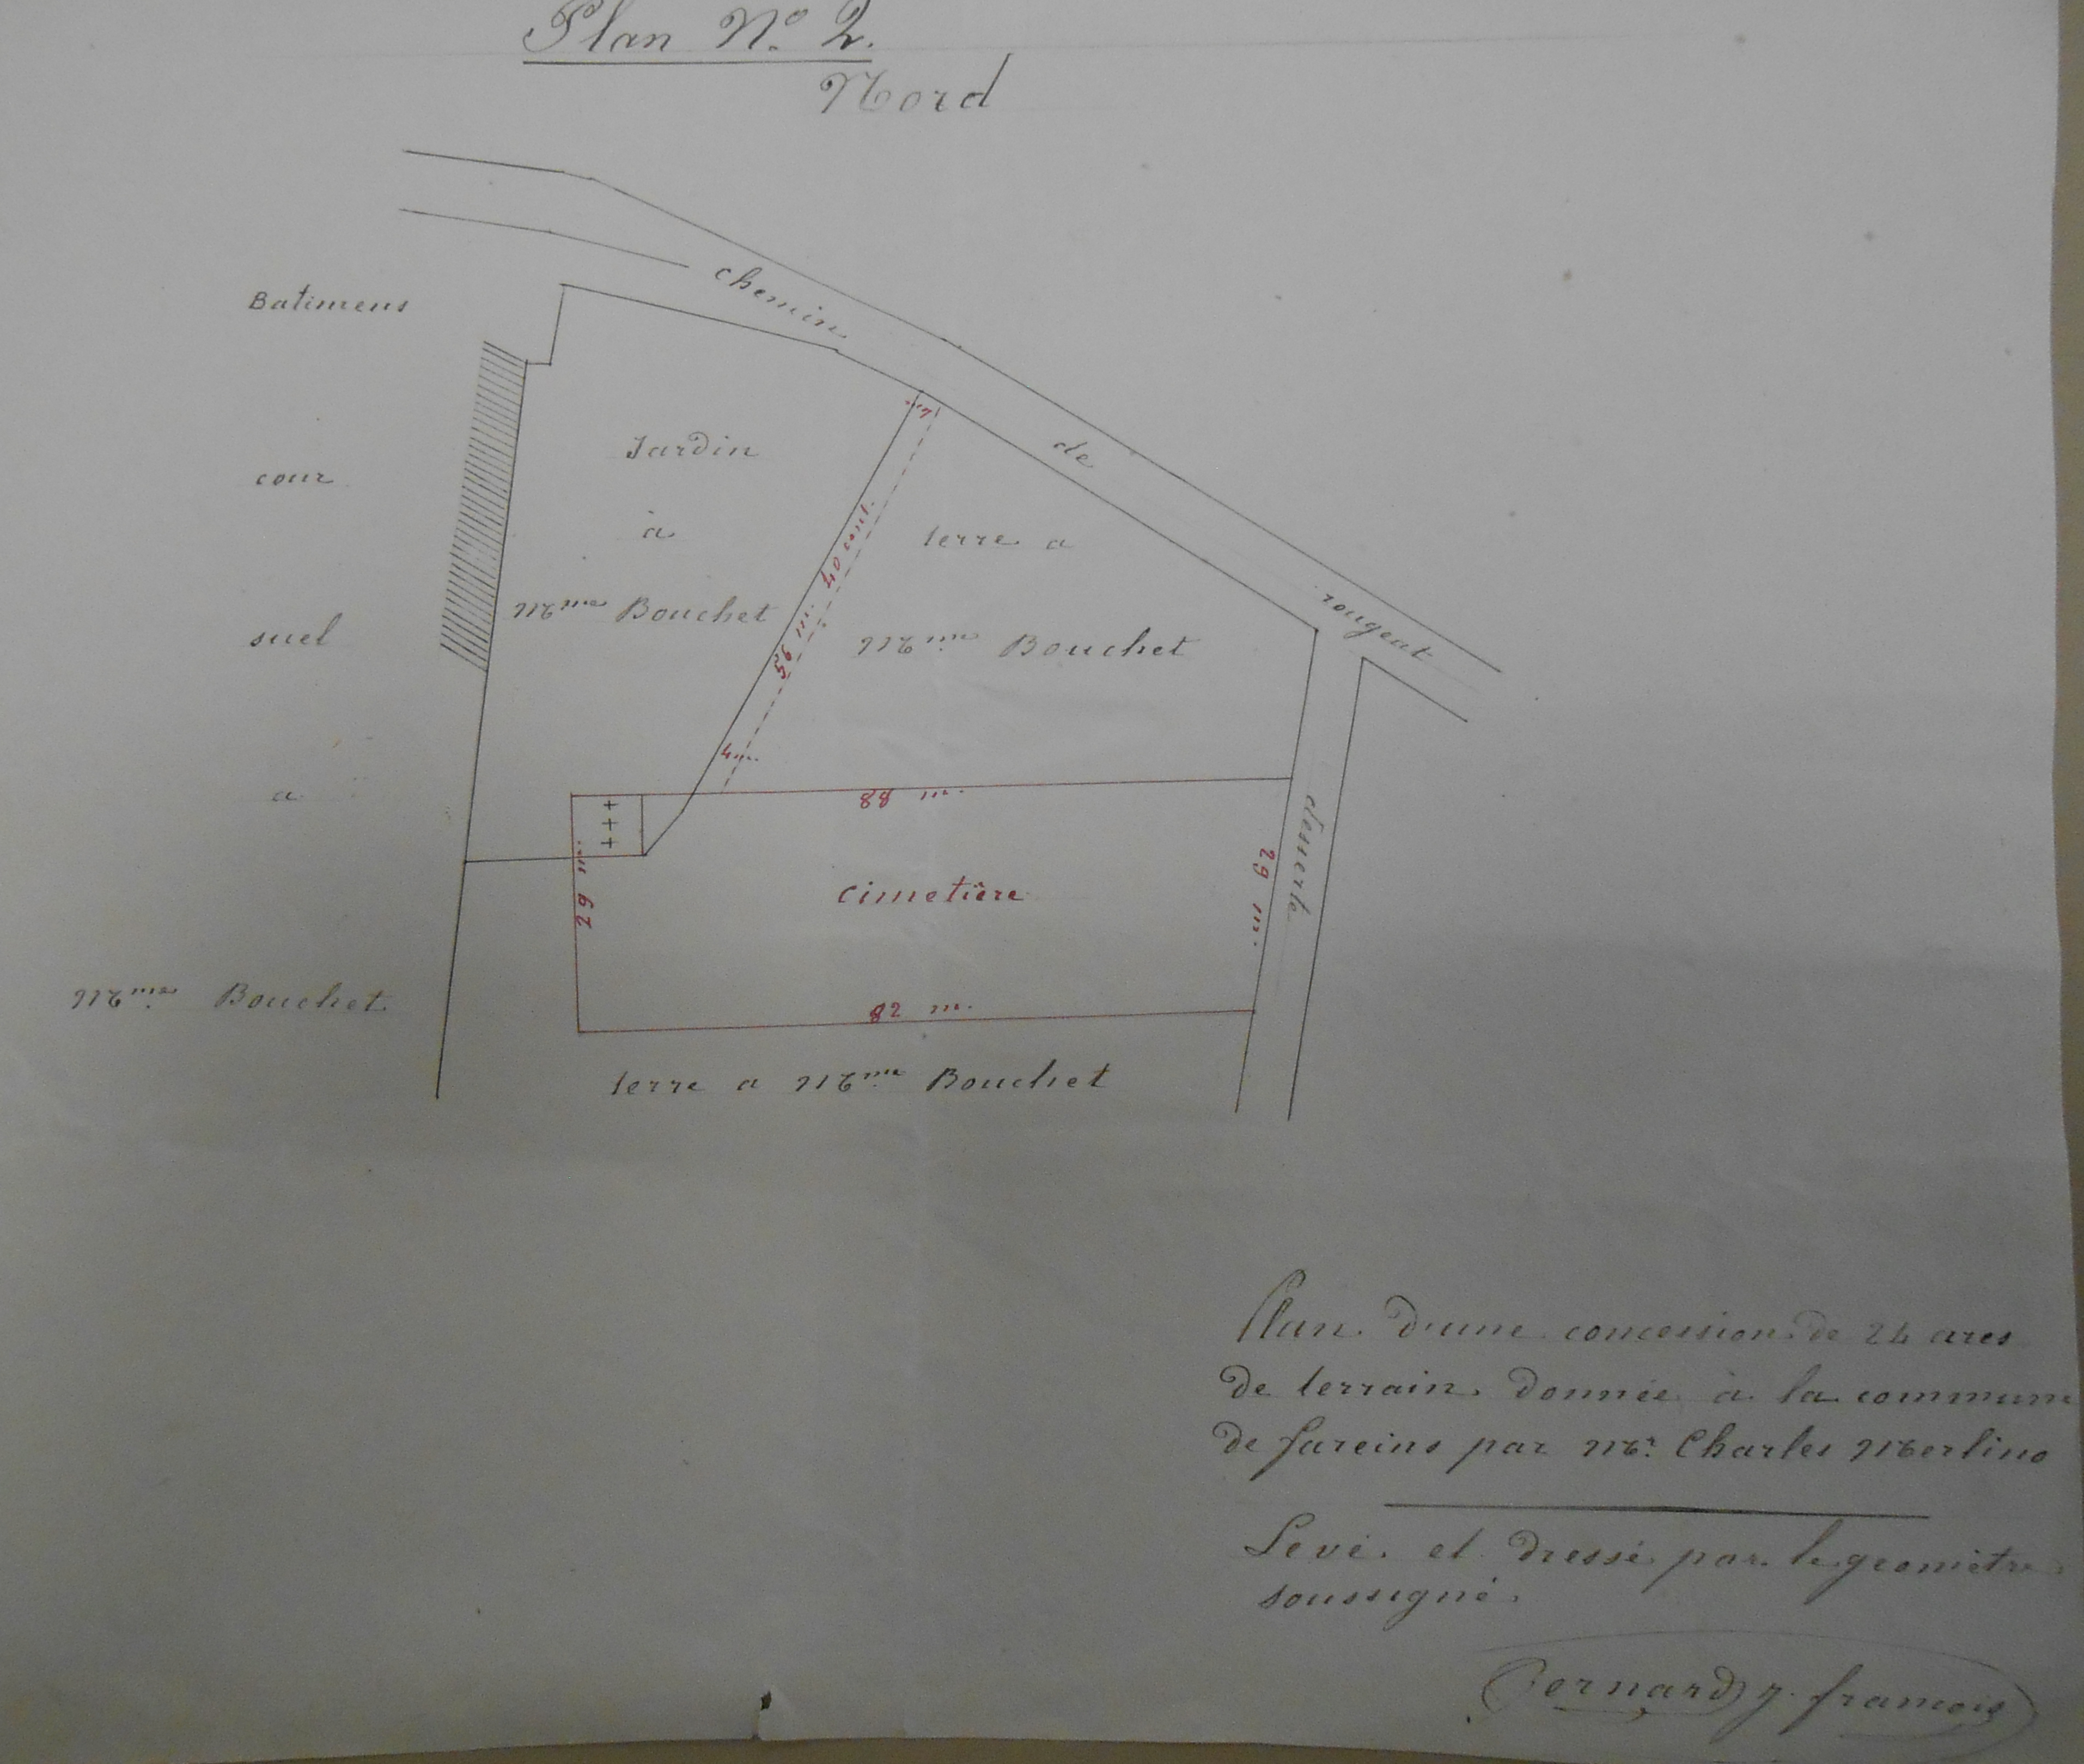 Plan N° 2.
Nord
chemin
de
rougeat
Batimens
cour
suel
a
Mme Bouchet
Jardin
à
Mme Bouchet
4 m.
56 m. 40 cent.
4 m.
terre a
Mme Bouchet
88 m.
+++
29 m.
cimetière
29 m.
desserte
82 m.
terre a Mme Bouchet
Plan d'une concession de 24 ares
de terrain donnée à la commune
de fareins par Mr. Charles Merlino
Levé et dressé par le géomètre
soussigné.
Bernard françois